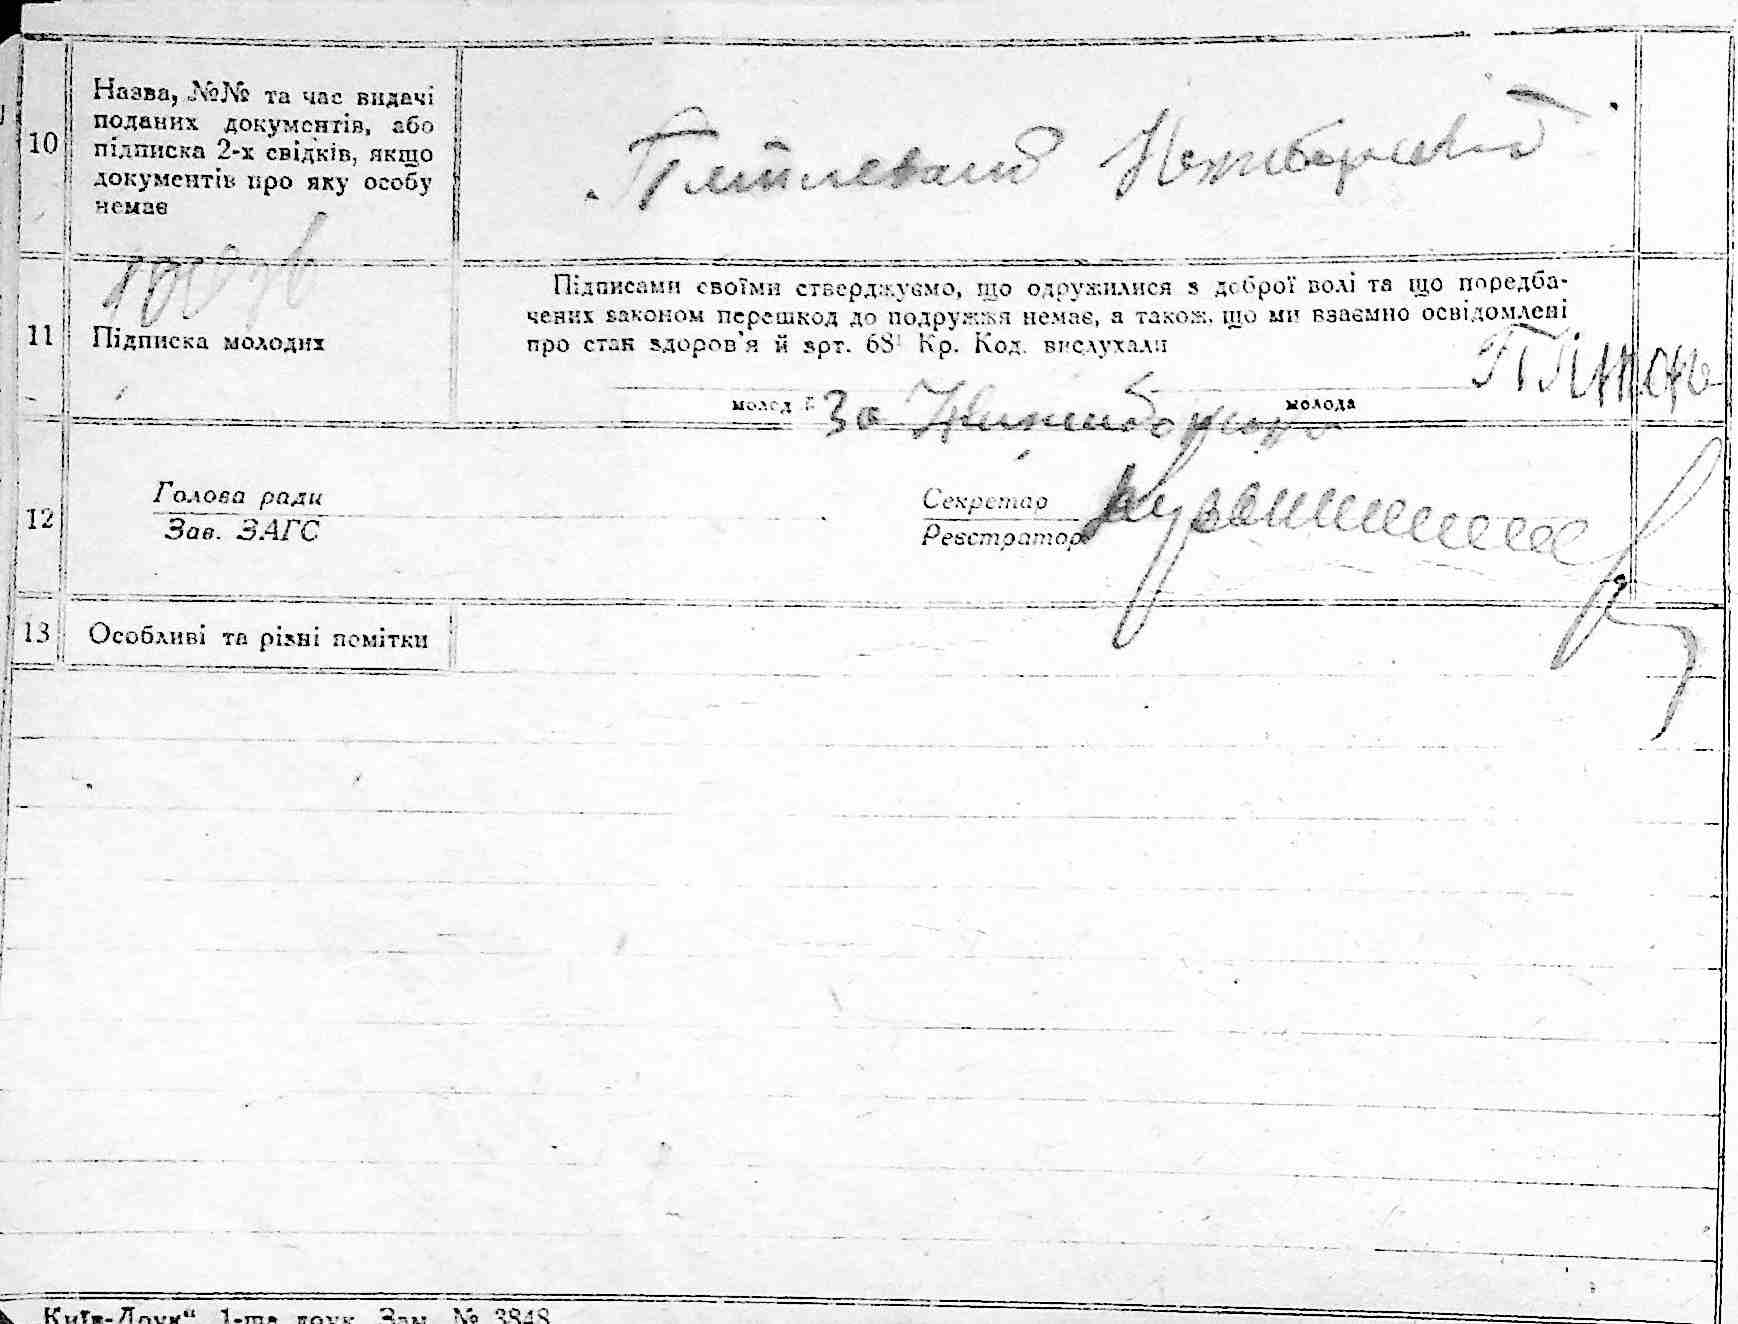 10
Назва, №№ та час видачі
поданих документів, або
підписка 2-х свідків, якщо
документів про яку особу
немає
11
Підписка молодих
Підписами своїми стверджуємо, що одружилися з доброї волі та що поредба-
чених законом перешкод до подружжя немає, а також, що ми взаємно освідомлені
про стан здоров'я й арт. 68¹ Кр. Код. вислухали
молод
молода
За
12
Голова ради
Зав. ЗАГС
Секретар
Реєстратор
13
Особливі та різні помітки
Київ-Друк“ 1-ша друк. Зам. № 3848